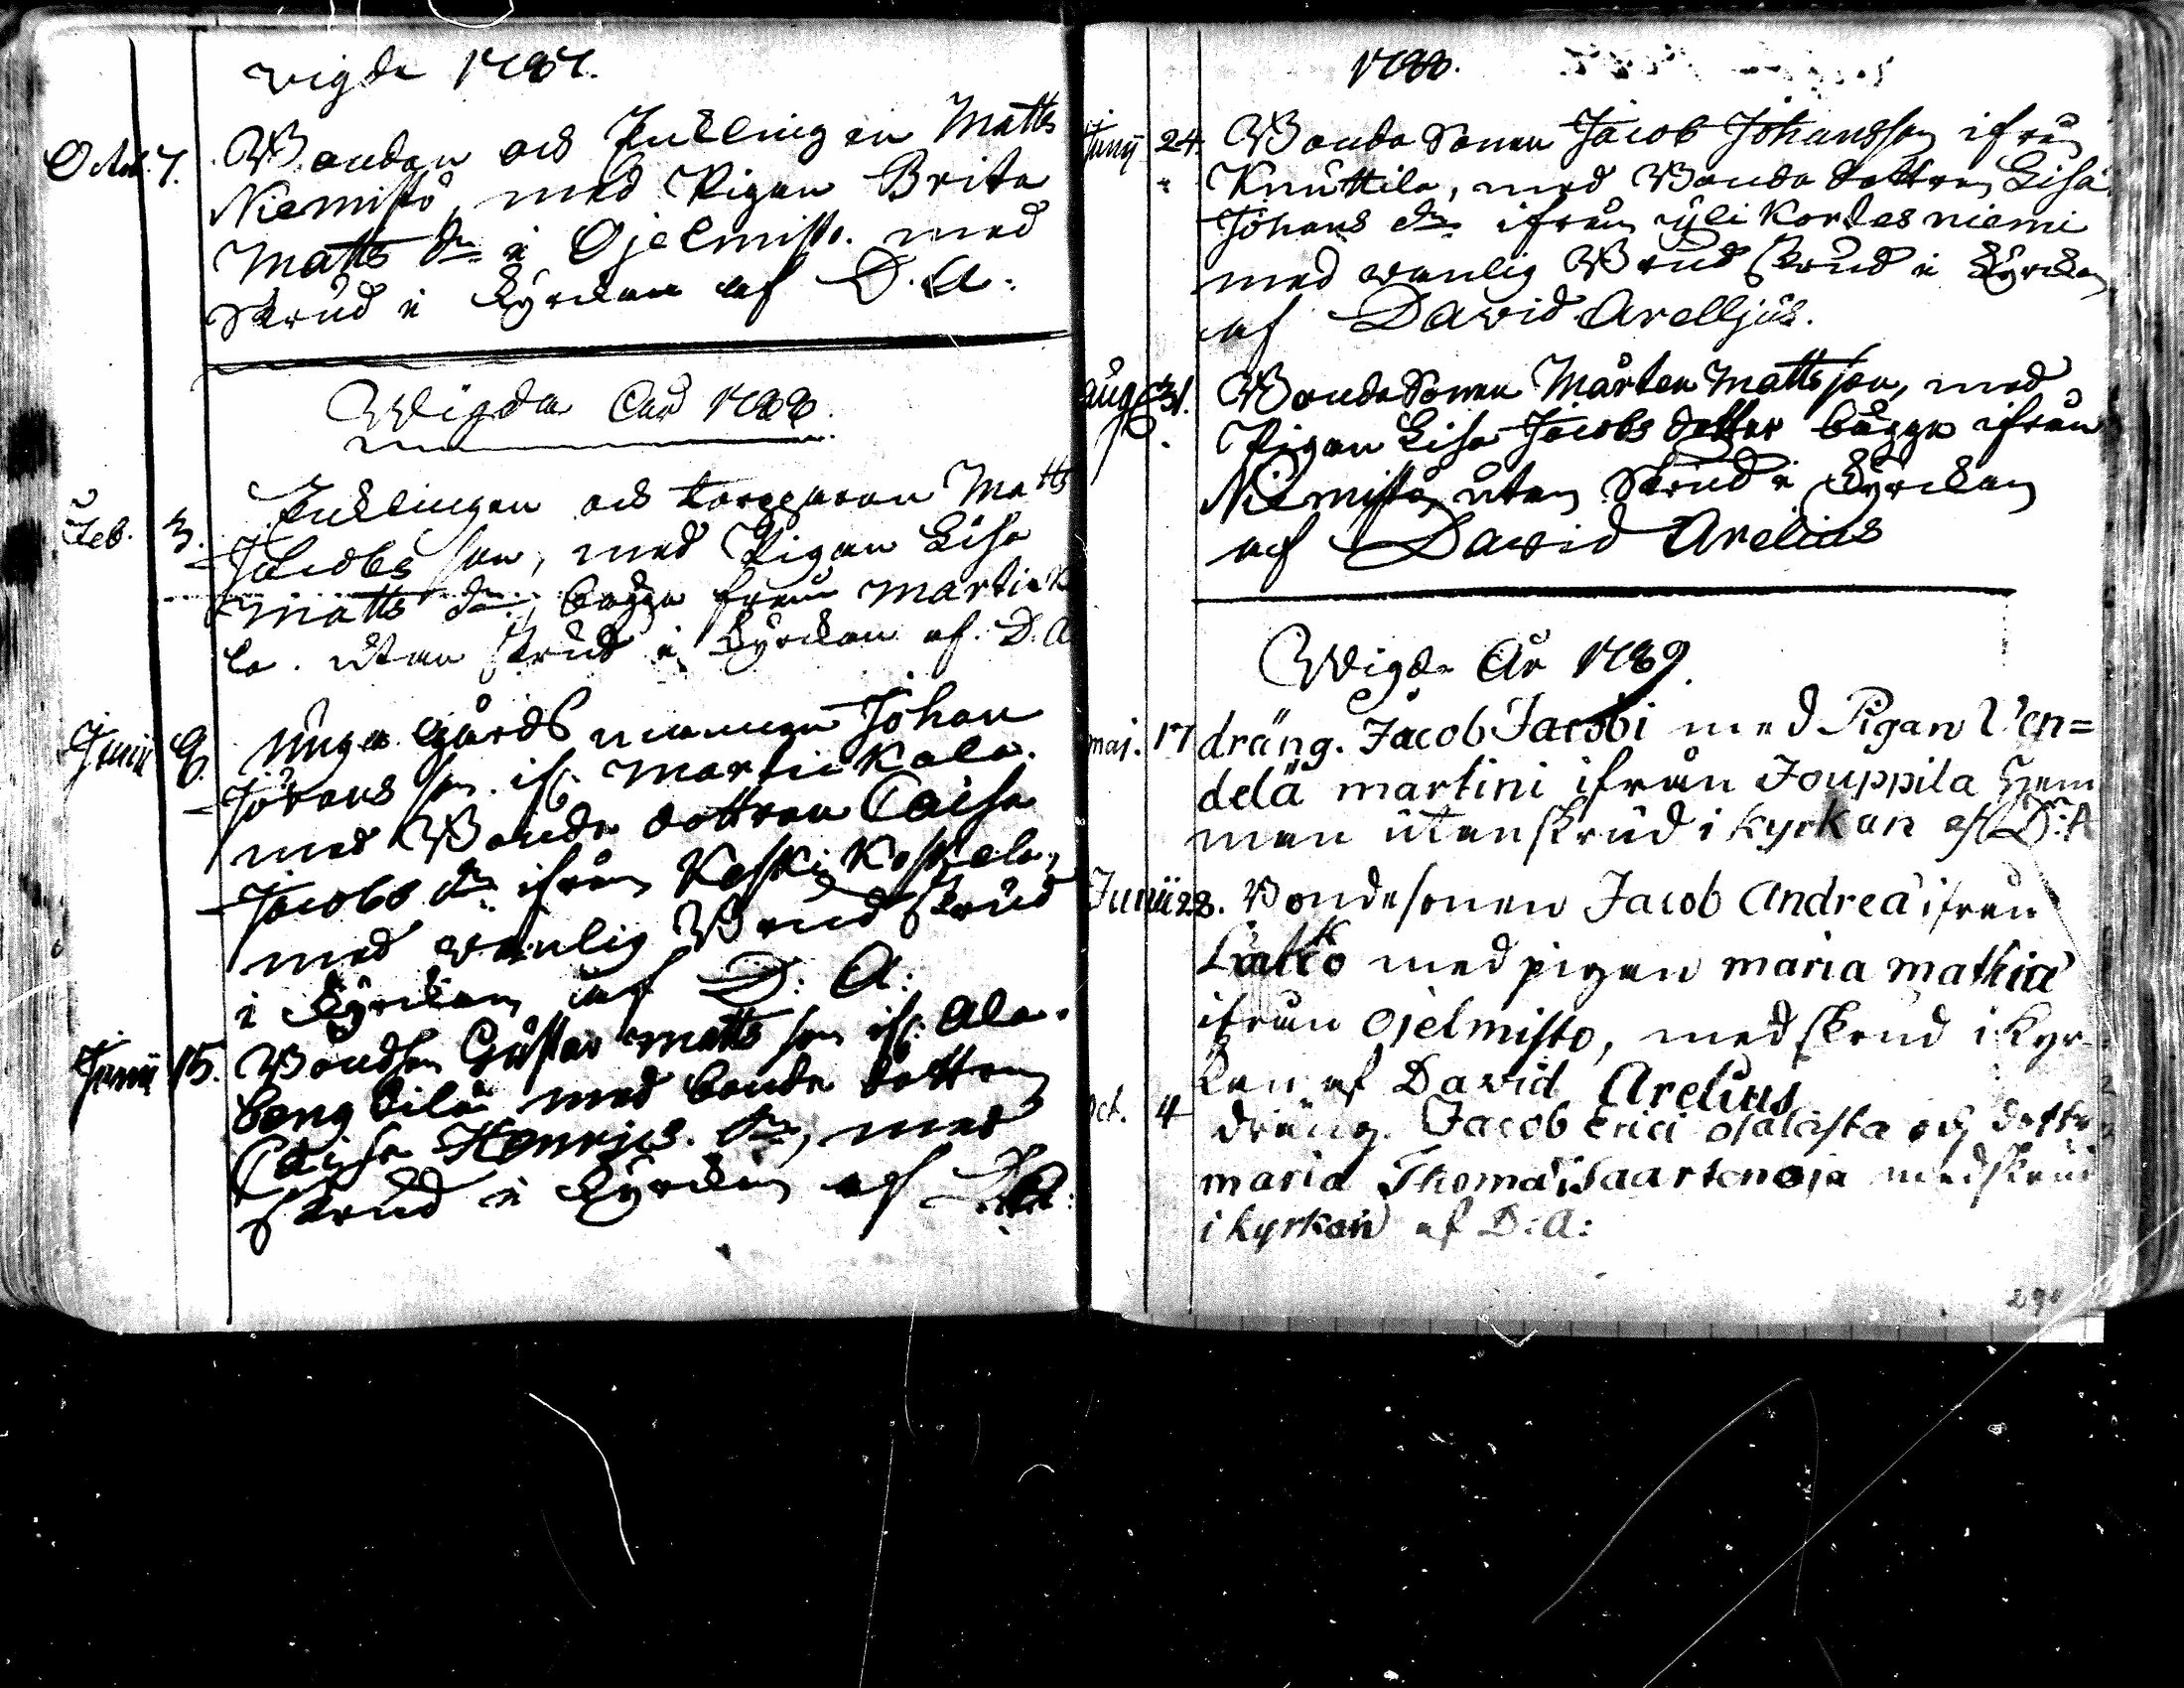 vigde 1787.
Octob. 7. Bonden och Enklingen Matts
Niemistö, med Pigan Brita
Matts dr i Ojelmisto. med
skrud i Kÿrckan af D. A.
Wigda Åhr 1788.
Feb. 3. Enklingen och torpparen Matts
Jacobs son, med Pigan Lisa
Matts dr, bägge från Martika
la. utan skrud i Kÿrckan af. D. A
Junii 8. unga Gårds mannen Johan
Jörans son. ifr. Martikala.
med Bonde dottren Caisa
Jacobs dr ifrån Keski Koskela,
med vanlig Brud skrud
i Kÿrckan af D: A:
Junii 15. Bondson Gustav Matts son ifr. Ala.
bengtilä med bonde dottren
Caisa Henrics. dr, med
skrud i Kÿrckan af D. A:
1788.
Junij 24. Bonde Sonen Jacob Johansson ifrån
Knuttila, med Bonde dottren Lisa
Johans dr. ifrån ÿli Kordesniemi
med vanlig Brud skrud i Kÿrckan
af David Arelljus.
Aug 31. Bonde Sonen Mårten Mattsson, med
Pigan Lisa Jacobs dotter bägge ifrån
Niemistö, utan Skrud i Kÿrckan
af David Arelius
Wigde År 1789.
maj. 17 dräng. Jacob Jacobi med Pigan Ven=
delä martini ifrån Jouppila Hem
man utan skrud i kyrkan af D: A
Junii 28. Bondesonen Jacob Andreä ifrån
med pigan maria mathiæ
ifrån Ojelmisto, med skrud i Kyr-
kan af David Arelius
oct. 4 dräng. Jacob Erici Ojalasta och dotte
maria Thomä Saartenoja med skrud
i kyrkan af D: A: